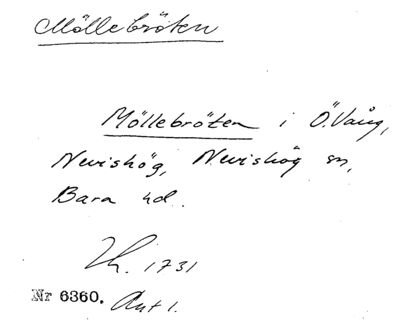 Möllebröten
Möllebröten i Ö. Vång,
Nevishög, Nevishög sn,
Bara hd.
1731
Nr 6360. Akt 1.